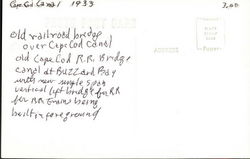 Cape Cod Canal 1933 7.00
old railroad bridge
over Cape Cod canal
old Cape Cod R.R. Bridge
canal at Buzzard Bay
with new single span
vertical lift bridge for RR
for RR trains being
built in foreground